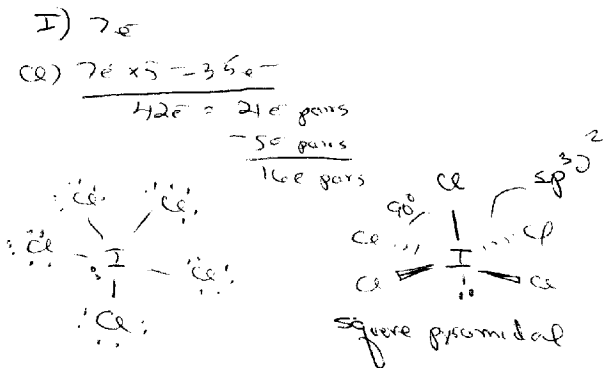 I) 7e⁻
Cl) 7e⁻ x5 = 35e⁻
42e⁻ = 21 e⁻ pairs
-5e⁻ pairs
16e⁻ pairs
Cl Cl
Cl I Cl
Cl
sp³d²
90°
Cl
Cl I Cl
Cl Cl
square pyramidal